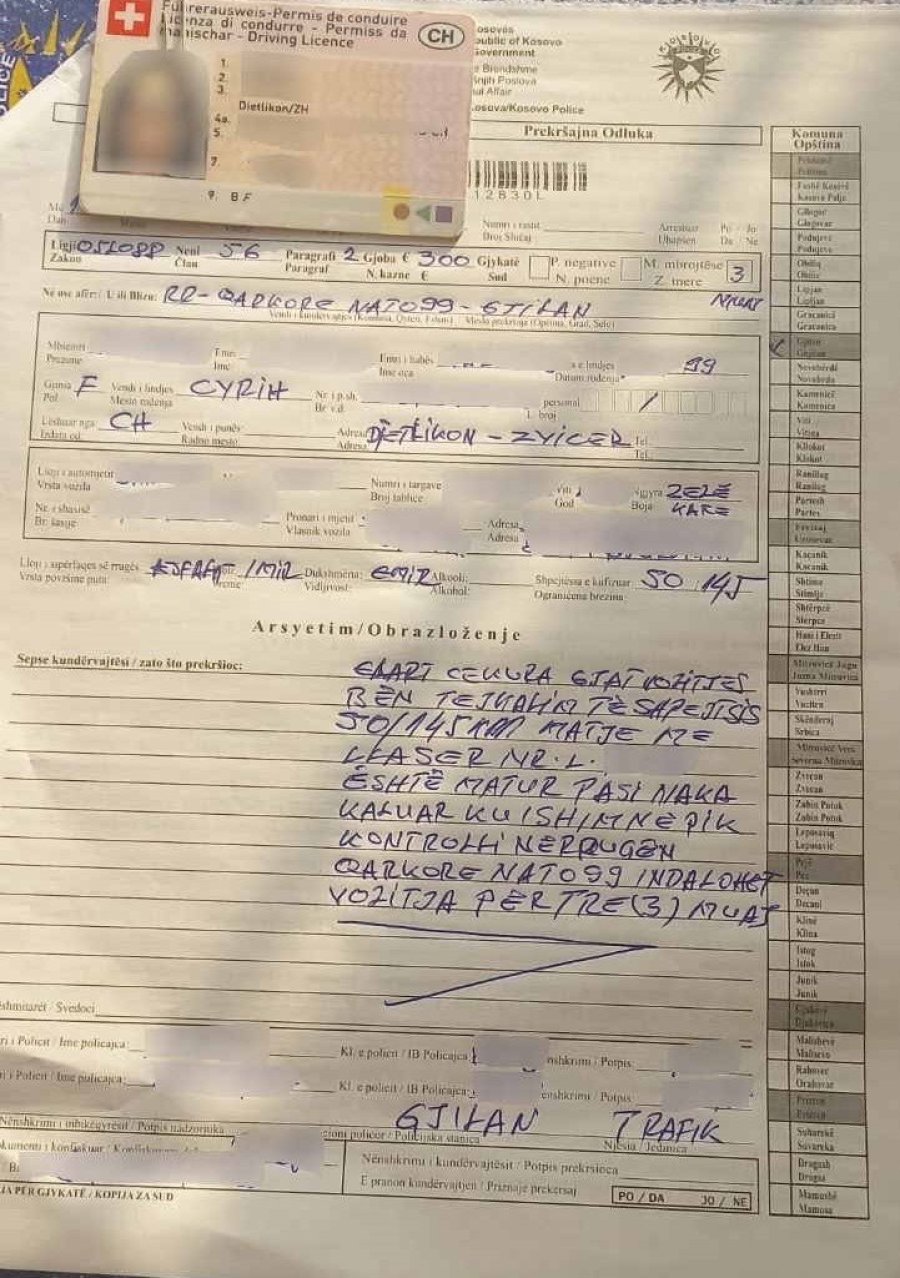 Führerausweis-Permis de conduire
Licenza di condurre - Permiss da
manischar - Driving Licence
CH
1.
2.
3.
Dietlikon/ZH
4a.
5.
7.
9. BF
Republic of Kosovo
Government
Kosova/Kosovo Police
Prekršajna Odluka
Komuna
Opština
12830L
Numri i rastit
Broj Slučaj
Arrestuar Po - Jo
Uhapšen Da Ne
Ligji 05L088 Neni 56 Paragrafi 2 Gjoba € 300 Gjykatë P. negative M. mbrojtëse 3
Zakon Član Paragraf N. kazne € Sud N. poene Z. mere
MUAJ
Ne ose afër: U ili Blizu: RR-QARKORE NATO99-GJILAN
Mbiemri Emri Emri i babës
Prezime Ime Ime oca Datum rođenja 99
Gjinia F Vendi i lindjes CYRIH
Pol Mesto rođenja
personal
broj
Lëshuar nga CH Vendi i punës Adresa DIETLIKON - ZVICER Tel.
Izdata od Radno mesto Adresa Tel.
Lloji i automjetit Numri i targave Viti Ngjyra ZEZË
Vrsta vozila Broj tablice God Boja KAKE
Nr. i shasisë Pronari i mjetit Adresa
Br. šasije Vlasnik vozila Adresa
Lloji i sipërfaqes së rrugës ASFALT / MIR Dukshmëria: EMIR Alkooli: Shpejtësia e kufizuar 50 145
Vrsta površine puta Vidljivost: Alkohol: Ograničena brzina
Arsyetim/Obrazloženje
Sepse kundërvajtësi / zato što prekršioc:
GJAT VOZITJES
BËN TEJKALIM TË SHPEJTSIS
50/145 KM MATJE ME
LLASER NR.L.
ËSHTË MATUR PASI NAKA
KALUAR KU ISHIM NE PIK
KONTROLLI NË RRUGËN
QARKORE NATO99 INDALOHET
VOZITJA PËR TRE(3) MUAJ
Dëshmitarët / Svedoci
Policit / Ime policajca: Kl. e policit / IB Policajca: Nënshkrimi / Potpis
Policit / Ime policajca: Kl. e policit / IB Policajca: Nënshkrimi / Potpis
GJILAN TRAFIK
Nënshkrimi i mbikëqyrësit / Potpis nadzornika Stacioni policor / Policijska stanica Njësia / Jedinica
Nënshkrimi i kundërvajtësit / Potpis prekršioca
E pranon kundërvajtjen / Priznaje prekršaj PO / DA JO / NE
KOPJA PËR GJYKATË / KOPIJA ZA SUD
Fushë Kosovë
Kosovo Polje
Gllogoc
Glogovac
Podujevë
Podujevo
Obiliq
Obilić
Lipjan
Lipljan
Graçanicë
Gracanica
Gjilan
Gnjilane
Novobërdë
Novobrdo
Kamenicë
Kamenica
Viti
Vitina
Kllokot
Klokot
Ranillug
Ranilug
Partesh
Parteš
Ferizaj
Uroševac
Kaçanik
Kacanik
Shtime
Štimlje
Shtërpcë
Štrpce
Hani i Elezit
Elez Han
Mitrovicë Jugu
Južna Mitrovica
Vushtrri
Vučitrn
Skënderaj
Srbica
Mitrovicë Veri
Severna Mitrovica
Zveçan
Zvečan
Zubin Potok
Zubin Potok
Leposaviq
Leposavić
Pejë
Peć
Deçan
Dečani
Klinë
Klina
Istog
Istok
Junik
Junik
Gjakovë
Djakovica
Malishevë
Mališevo
Rahovec
Orahovac
Prizren
Prizren
Suharekë
Suvareka
Dragash
Dragaš
Mamushë
Mamuša